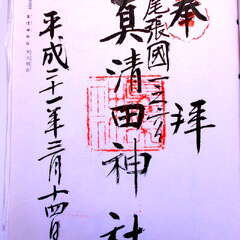 奉拝
尾張國一之宮
真清田神社
平成二十一年三月十四日